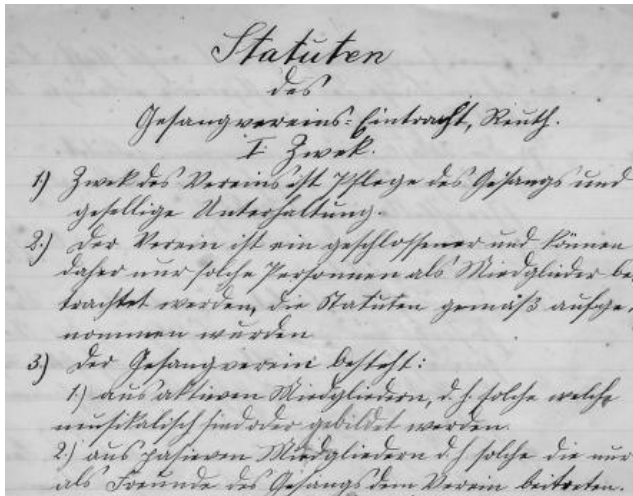 Statuten
des
Gesangvereins-Eintracht, Reuth.
I. Zwek.
1.) Zwek des Vereins ist Pflege des Gesangs und
gesellige Unterhaltung.
2.) Der Verein ist ein geschlossener und können
daher nur solche Personnen als Miedglieder be-
trachtet werden, die Statuten gemäß aufge-
nommen wurden
3.) Der Gesangverein besteht:
1.) aus aktiven Miedgliedern, d. h. solche welche
musikalisch sind oder gebildet werden.
2.) aus pasieven Miedgliedern d. h. solche die nur
als Freunde des Gesangs dem Verein beitreten.